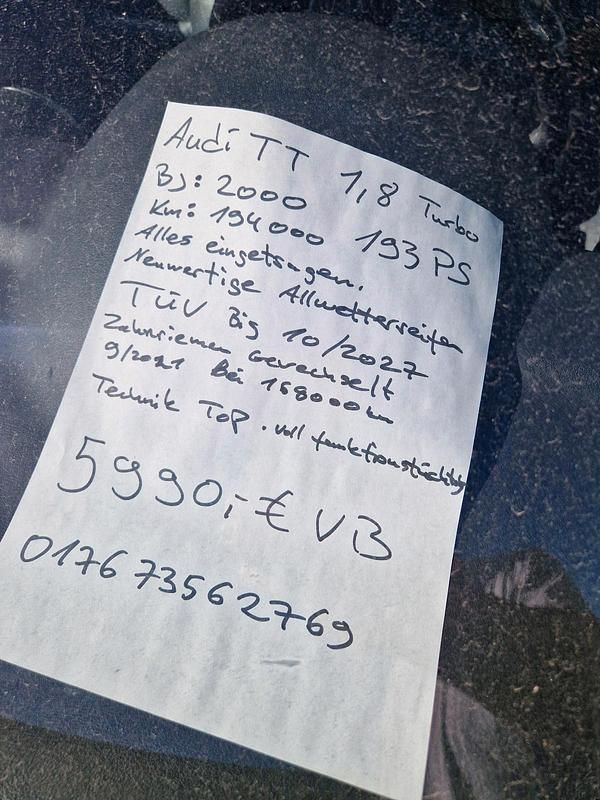 Audi TT 1,8 Turbo
BJ: 2000 193 PS
Km: 194000
Alles eingetragen.
Neuwertige Allwetterreifen
TÜV Bis 10/2027
Zahnriemen Gewechselt
9/2021 Bei 168000 km
Technik ToP. voll funktionstüchtig
5990,-€ VB
0176 73562769